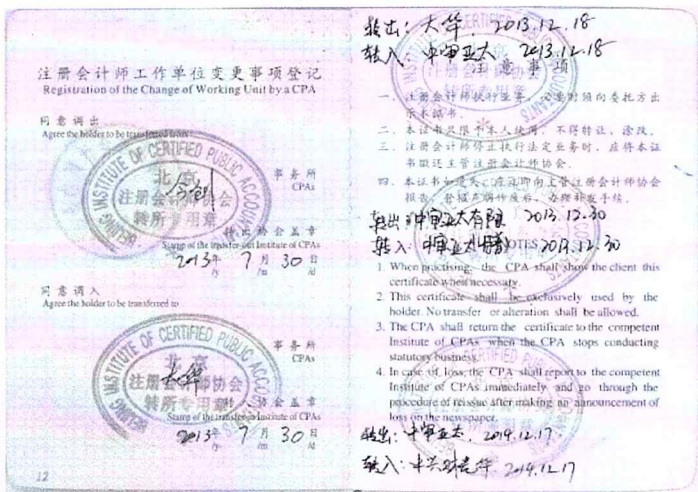 注册会计师工作单位变更事项登记
Registration of the Change of Working Unit by a CPA
同意调出
Agree the holder to be transferred from
BEIJING INSTITUTE OF CERTIFIED PUBLIC ACCOUNTANTS
北京
注册会计师协会
转所专用章
事务所
CPAs
转出协会盖章
Stamp of the transfer-out Institute of CPAs
2013年 7月 30日
/y /m /d
同意调入
Agree the holder to be transferred to
BEIJING INSTITUTE OF CERTIFIED PUBLIC ACCOUNTANTS
北京
注册会计师协会
转所专用章
大华
事务所
CPAs
转入协会盖章
Stamp of the transfer-in Institute of CPAs
2013年 7月 30日
/y /m /d
12
转出: 大华 2013.12.18
转入: 中审亚太 2013.12.18
注意事项
一、注册会计师执行业务,必要时须向委托方出
示本证书。
二、本证书只限于本人使用,不得转让、涂改。
三、注册会计师停止执行法定业务时,应将本证
书缴还主管注册会计师协会。
四、本证书如遗失,应立即向主管注册会计师协会
报告,登报声明作废后,办理补发手续。
转出: 中审亚太有限 2013.12.30
转入: 中审亚太 2013.12.30
NOTES
1. When practising, the CPA shall show the client this
certificate when necessary.
2. This certificate shall be exclusively used by the
holder. No transfer or alteration shall be allowed.
3. The CPA shall return the certificate to the competent
Institute of CPAs when the CPA stops conducting
statutory business.
4. In case of loss, the CPA shall report to the competent
Institute of CPAs immediately and go through the
procedure of reissue after making an announcement of
loss on the newspaper.
转出: 中审亚太 2014.12.17
转入: 中兴财光华 2014.12.17